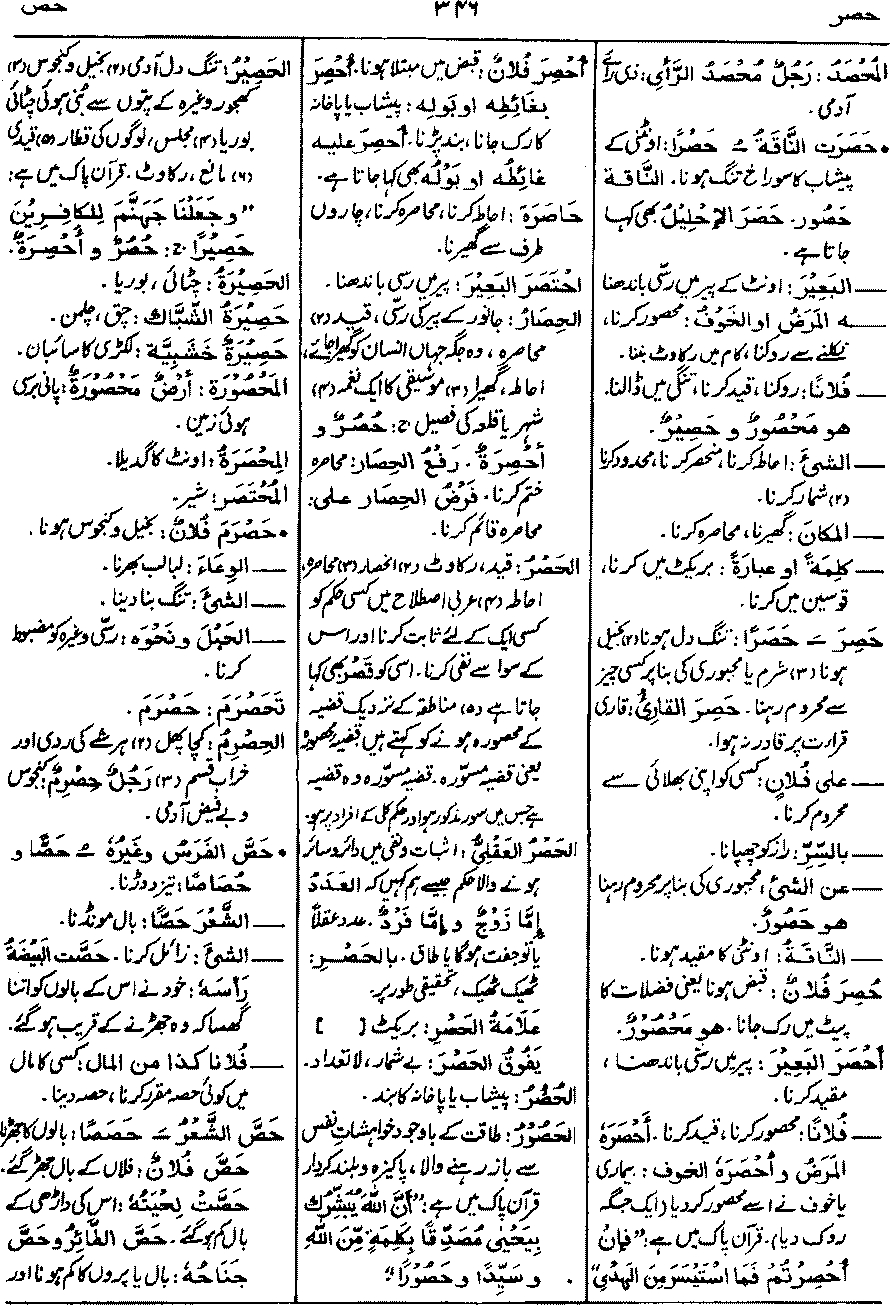 حصر ٣٤٦ حص
المُحْصَدُ: رَجُلٌ مُحْصَدُ الرَّأْيِ: ذی رائے
آدمی۔
• حَصَرَت النَّاقَةُ ـُ حَصْرًا: اونٹنی کے
پیشاب کا سوراخ تنگ ہونا۔ النَّاقَة
حَصُور۔ حَصَرَ الإحْلِيلُ بھی کہا
جاتا ہے۔
— البَعِيرَ: اونٹ کے پیر میں رسّی باندھنا
— ه المَرَضُ او الخَوفُ: محصور کرنا،
نکلنے سے روکنا، کام میں رکاوٹ بننا۔
— فُلَانًا: روکنا، قید کرنا، تنگی میں ڈالنا۔
هو مَحْصُورٌ و حَصِيرٌ۔
— الشئَ: احاطہ کرنا، منحصر کرنا، محدود کرنا
(۲) شمار کرنا۔
— المكانَ: گھیرنا، محاصرہ کرنا۔
— كلِمَةً او عبارَةً: بریکٹ میں کرنا،
قوسین میں کرنا۔
حَصِرَ ـَ حَصَرًا: تنگ دل ہونا (۲) بخیل
ہونا (۳) شرم یا مجبوری کی بنا پر کسی چیز
سے محروم رہنا۔ حَصِرَ القارِئُ: قاری
قرارت پر قادر نہ ہوا۔
— على فُلانٍ: کسی کو اپنی بھلائی سے
محروم کرنا۔
— بالسِّرِّ: راز کو چھپانا۔
— عن الشئ: مجبوری کی بنا پر محروم رہنا
هو حَصُورٌ۔
— النَّاقَةُ: اونٹنی کا مقید ہونا۔
حُصِرَ فُلَانٌ: قبض ہونا یعنی فضلات کا
پیٹ میں رک جانا۔ هو مَحْصُورٌ۔
أَحْصَرَ البَعِيرَ: پیر میں رسّی باندھنا،
مقید کرنا۔
— فُلَانًا: محصور کرنا، قید کرنا۔ أَحْصَرَهُ
المَرَضُ و أَحْصَرَهُ الخوف: بیماری
یا خوف نے اسے محصور کردیا (ایک جگہ
روک دیا)۔ قرآن پاک میں ہے: "فَإِنْ
أُحْصِرْتُمْ فَمَا اسْتَيْسَرَ مِنَ الْهَدْيِ"
أُحْصِرَ فُلَانٌ: قبض میں مبتلا ہونا۔ أُحْصِرَ
بغَائِطِه او بَولِه: پیشاب یا پاخانہ
کا رک جانا، بند پڑنا۔ أُحْصِرَ عليه
غائِطُه او بَوْلُه بھی کہا جاتا ہے۔
حَاصَرَهُ: احاطہ کرنا، محاصرہ کرنا، چاروں
طرف سے گھیرنا۔
احْتَصَرَ البَعِيرَ: پیر میں رسی باندھنا۔
الحِصَارُ: جانور کے پیر کی رسّی، قید (۲)
محاصرہ، وہ جگہ جہاں انسان کو گھیرا جائے،
احاطہ، گھیرا (۳) موسیقی کا ایک نغمہ (۴)
شہر یا قلعہ کی فصیل ج: حُصُرٌ و
أَحْصِرَةٌ۔ رَفْعُ الحِصارِ: محاصرہ
ختم کرنا۔ فَرْضُ الحِصار على:
محاصرہ قائم کرنا۔
الحَصْرُ: قید، رکاوٹ (۲) انحصار (۳) محاصرہ،
احاطہ (۴) عربی اصطلاح میں کسی حکم کو
کسی ایک کے لئے ثابت کرنا اور اس
کے سوا سے نفی کرنا۔ اسی کو قَصْر بھی کہا
جاتا ہے (۵) مناطقہ کے نزدیک قضیہ
کے محصورہ ہونے کو کہتے ہیں قضیہ محصورہ
یعنی قضیہ مسوّرہ۔ قضیہ مسوّرہ وہ قضیہ
ہے جس میں سور مذکور ہو اور حکم کل کے افراد پر ہو۔
الحَصْرُ العَقْلِيُّ: اثبات و نفی میں دائر و سائر
ہونے والا حکم جیسے ہم کہیں کہ العَدَدُ
إِمَّا زَوْجٌ و إِمَّا فَرْدٌ۔ عدد عقلاً
یا تو جفت ہوگا یا طاق۔ بالحَصْرِ:
ٹھیک ٹھیک، تحقیقی طور پر۔
عَلَامَةُ الحَصْرِ: بریکٹ [ ]
يَفُوقُ الحَصْرَ: بے شمار، لاتعداد۔
الحُصْرُ: پیشاب یا پاخانہ کا بند۔
الحَصُورُ: طاقت کے باوجود خواہشاتِ نفس
سے باز رہنے والا، پاکیزہ و بلند کردار
قرآن پاک میں ہے: "أَنَّ اللّٰهَ يُبَشِّرُكَ
بِيَحْيٰى مُصَدِّقًا بِكَلِمَةٍ مِّنَ اللّٰهِ
و سَيِّدًا و حَصُورًا"۔
الحَصِيرُ: تنگ دل آدمی (۲) بخیل و کنجوس (۳)
کھجور وغیرہ کے پتوں سے بنی ہوئی چٹائی
بوریا (۴) مجلس، لوگوں کی قطار (۵) قیدی
(۶) مانع، رکاوٹ۔ قرآن پاک میں ہے:
"وجَعَلْنَا جَهَنَّمَ لِلْكَافِرِيْنَ
حَصِيْرًا" ج: حُصُرٌ و أَحْصِرَةٌ۔
الحَصِيرَةُ: چٹائی، بوریا۔
حَصِيرَةُ الشُّبَّاك: چق، چلمن۔
حَصِيرَةٌ خَشَبِيَّة: لکڑی کا سائبان۔
المَحْصُورَة: أَرضٌ مَحْصُورَةٌ: پانی بری
ہوئی زمین۔
المِحْصَرَةُ: اونٹ کا گدیلا۔
المُحْتَصَر: شیر۔
• حَصْرَمَ فُلَانٌ: بخیل و کنجوس ہونا۔
— الوِعَاءَ: لبالب بھرنا۔
— الشئَ: تنگ بنا دینا۔
— الحَبْلَ و نَحْوَه: رسّی وغیرہ کو مضبوط
کرنا۔
تَحَصْرَمَ: حَصْرَمَ۔
الحِصْرِمُ: کچا پھل (۲) ہر شے کی ردی اور
خراب قسم (۳) رَجُلٌ حِصْرِمٌ: کنجوس
و بے فیض آدمی۔
• حَصَّ الفَرَسُ وغَيْرُهُ ـُ حَصًّا و
حُصَاصًا: تیز دوڑنا۔
— الشَّعْرَ حَصًّا: بال مونڈنا۔
— الشئَ: زائل کرنا۔ حَصَّت البَيْضَةُ
رَأسَهُ: خود نے اس کے بالوں کو اتنا
گھسا کہ وہ جھڑنے کے قریب ہو گئے۔
— فُلانا كذا من المال: کسی کا مال
میں کوئی حصہ مقرر کرنا، حصہ دینا۔
حَصَّ الشَّعْرُ ـَ حَصَصًا: بالوں کا جھڑنا
حَصَّ فُلَانٌ: فلاں کے بال جھڑ گئے۔
حَصَّتْ لِحْيَتُهُ: اس کی داڑھی کے
بال کم ہو گئے۔ حَصَّ الطَّائِرُ و حَصَّ
جَنَاحُهُ: بال یا پروں کا کم ہونا اور